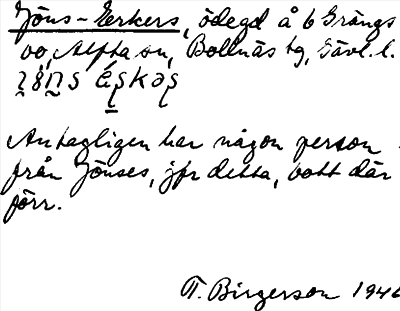 Jöns-Erkers, ödegd å 6 Grängsbo, Alfta sn, Bollnäs tg, Gävl. l.
Antagligen har någon person
från Jönses, jfr detta, bott där
förr.
T. Birgerson 1946